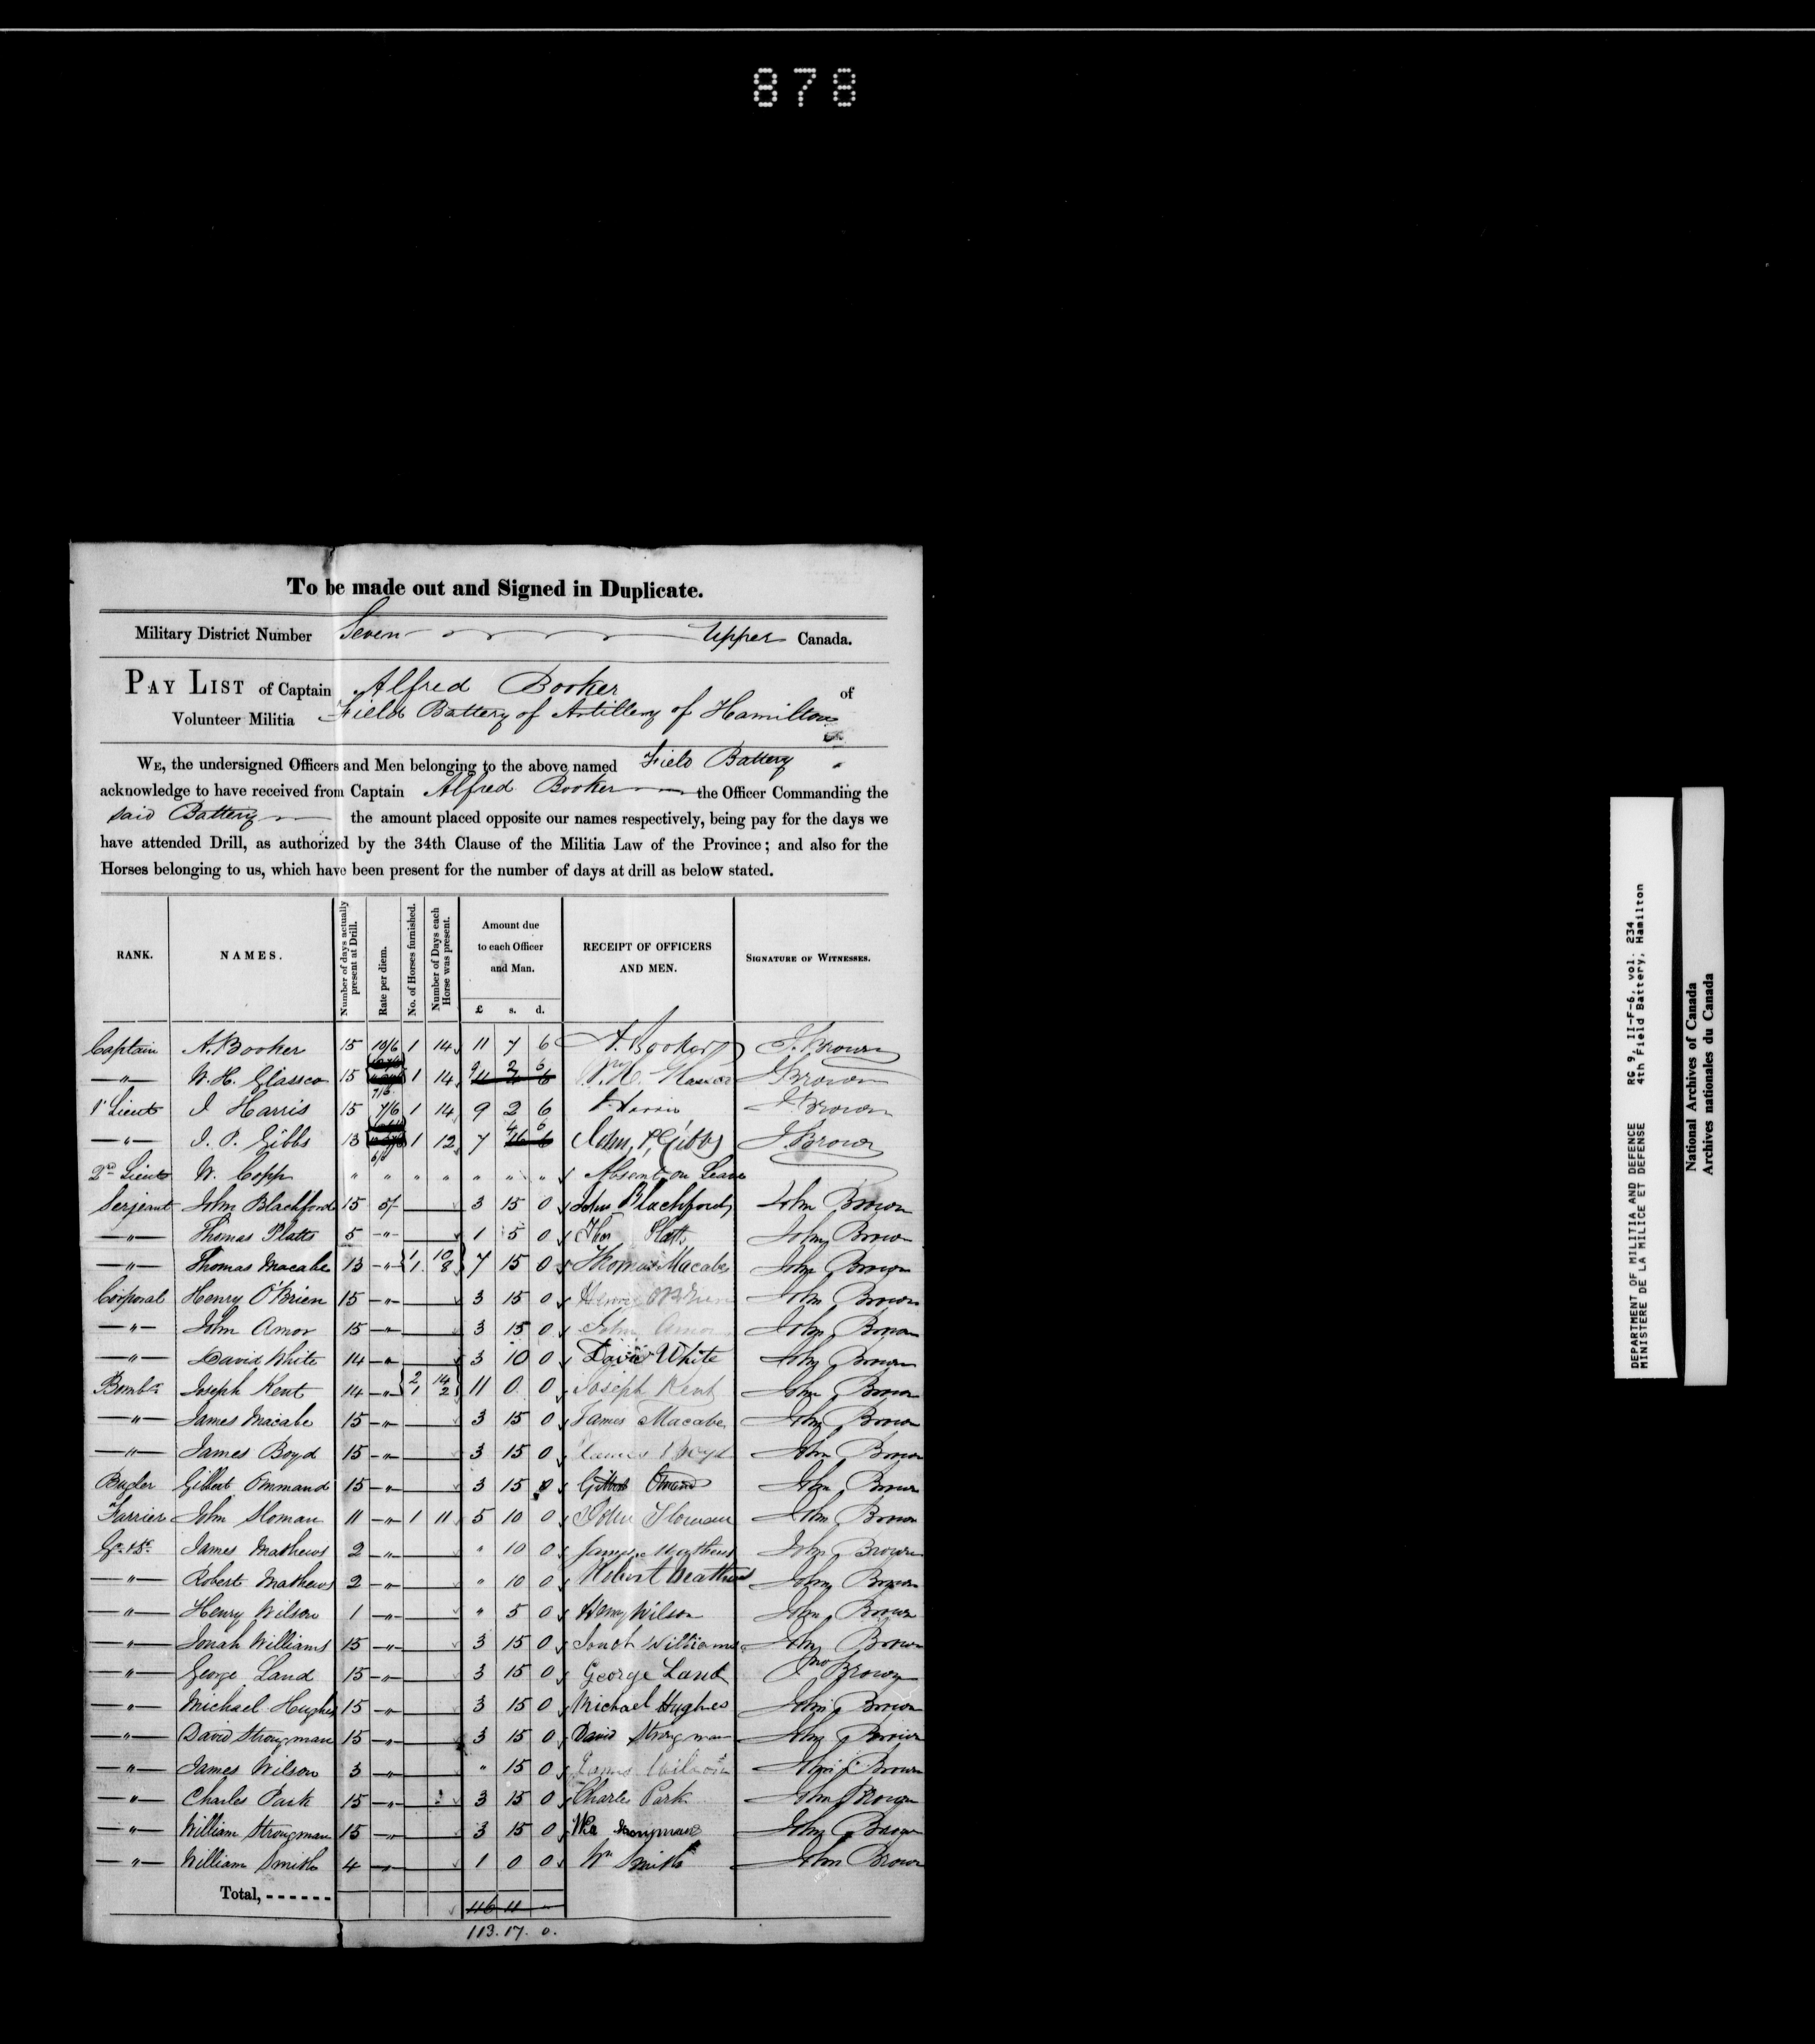 878
To be made out and Signed in Duplicate.
Military District Number Seven Upper Canada.
PAY LIST of Captain Alfred Booker of
Volunteer Militia Field Battery of Artillery of Hamilton
WE, the undersigned Officers and Men belonging to the above named Field Battery
acknowledge to have received from Captain Alfred Booker the Officer Commanding the
said Battery the amount placed opposite our names respectively, being pay for the days we
have attended Drill, as authorized by the 34th Clause of the Militia Law of the Province; and also for the
Horses belonging to us, which have been present for the number of days at drill as below stated.
RANK. NAMES. Number of days actually present at Drill. Rate per diem. No. of Horses furnished. Number of Days each Horse was present. Amount due to each Officer and Man. RECEIPT OF OFFICERS AND MEN. SIGNATURE OF WITNESSES.
£ s. d.
Captain A. Booker 15 10/6 1 14 11 7 6 A. Booker J. Brown
—"— W. H. Glassco 15 7/6 1 14 9 2 6 W. H. Glassco J Brown
1st Lieut J Harris 15 7/6 1 14 9 2 6 J. Harris J. Brown
—"— J. P. Gibbs 13 6/ 1 12 7 4 6 John P. Gibbs J. Brown
2nd Lieut W. Copp " " " " " " " Absent on Leave
Serjeant John Blachford 15 5/ 3 15 0 John Blachford John Brown
—"— Thomas Platts 5 —"— 1 5 0 Thos Platts John Brown
—"— Thomas Macabe 13 —"— 1 10 1 8 7 15 0 Thomas Macabe John Brown
Corporal Henry O'Brien 15 —"— 3 15 0 Henry O'Brien John Brown
—"— John Amor 15 —"— 3 15 0 John Amor John Brown
—"— David White 14 —"— 3 10 0 David White John Brown
Bombr Joseph Kent 14 —"— 2 14 1 2 11 0 0 Joseph Kent John Brown
—"— James Macabe 15 —"— 3 15 0 James Macabe John Brown
—"— James Boyd 15 —"— 3 15 0 James Boyd John Brown
Bugler Gilbert Ommand 15 —"— 3 15 0 Gilbert Omand John Brown
Farrier John Sloman 11 —"— 1 11 5 10 0 John Sloman John Brown
Gr. & Dr. James Mathews 2 —"— " 10 0 James Mathews John Brown
—"— Robert Mathews 2 —"— " 10 0 Robert Mathews John Brown
—"— Henry Wilson 1 —"— " 5 0 Henry Wilson John Brown
—"— Jonah Williams 15 —"— 3 15 0 Jonah Williams John Brown
—"— George Land 15 —"— 3 15 0 George Land Jno Brown
—"— Michael Hughes 15 —"— 3 15 0 Michael Hughes John Brown
—"— David Strongman 15 —"— 3 15 0 David Strongman John Brown
—"— James Wilson 3 —"— " 15 0 James Wilson John Brown
—"— Charles Park 15 —"— 3 15 0 Charles Park John Brown
—"— William Strongman 15 —"— 3 15 0 Wm Strongman John Brown
—"— William Smith 4 —"— 1 0 0 Wm Smith John Brown
Total, - - - - - - 116 11 -
113. 17. 0.
DEPARTMENT OF MILITIA AND DEFENCE RG 9, II-F-6, vol. 234
MINISTERE DE LA MILICE ET DEFENSE 4th Field Battery, Hamilton
National Archives of Canada
Archives nationales du Canada